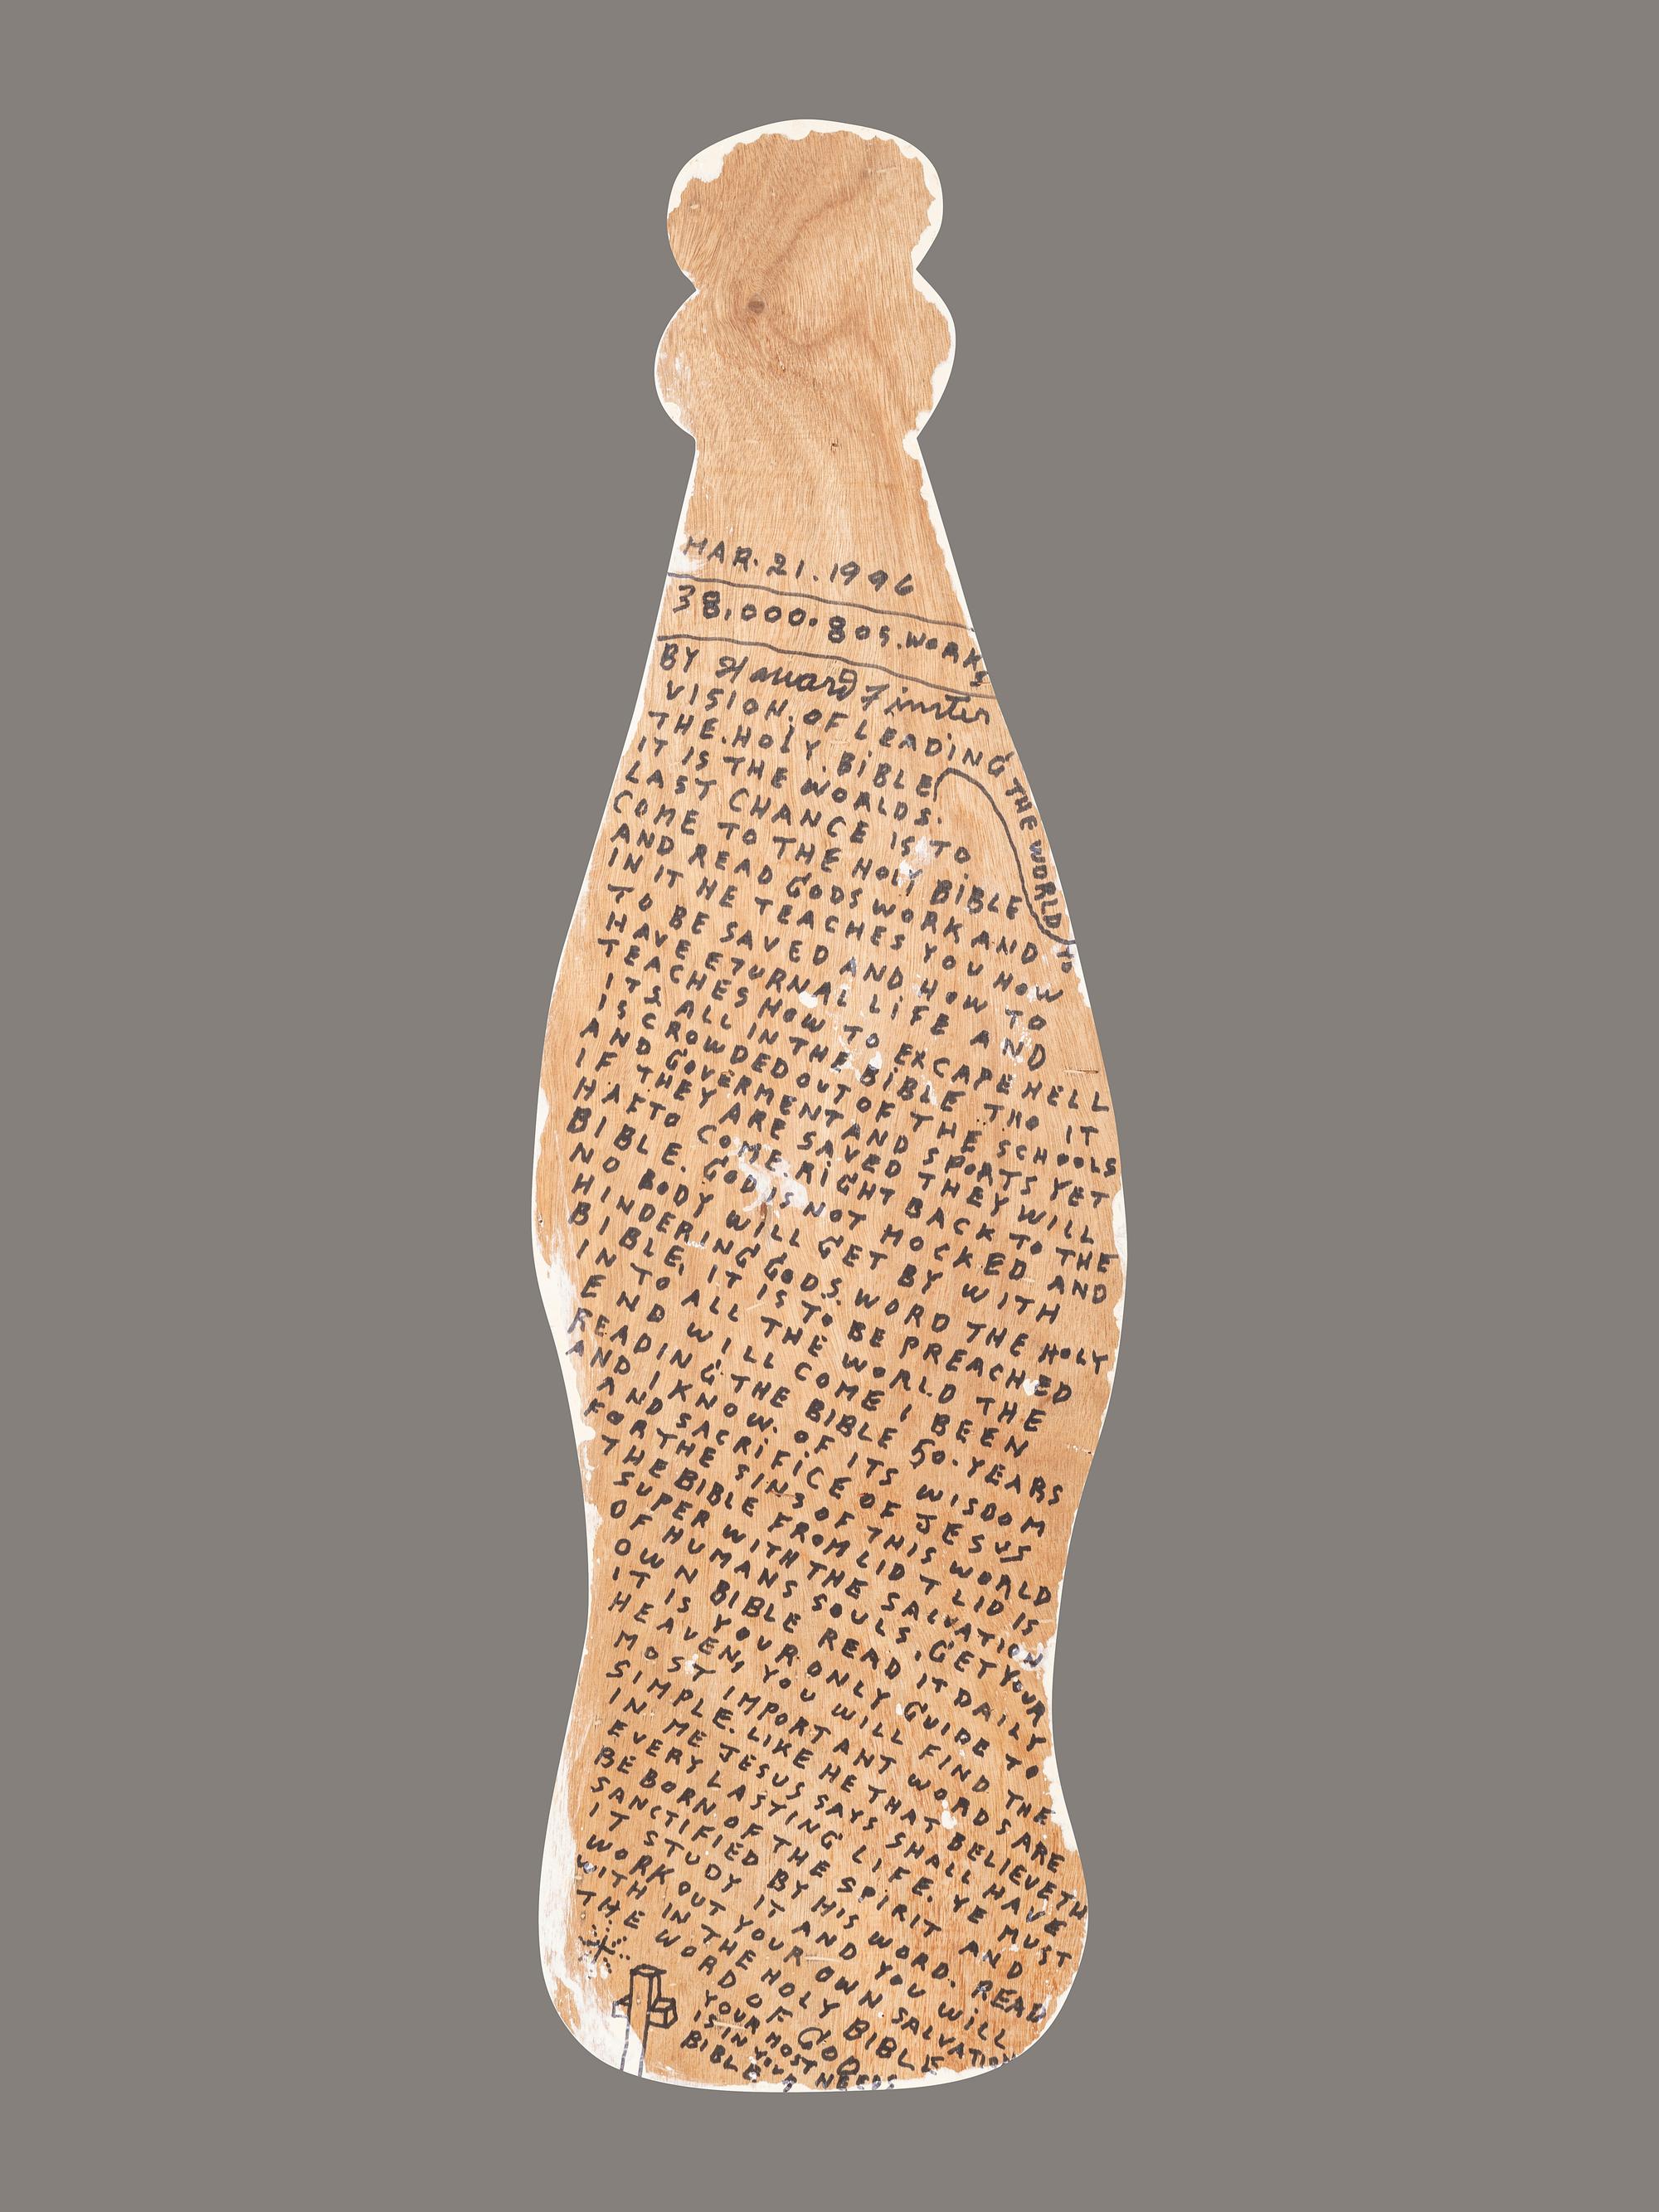 MAR. 21. 1996
38,000.805. WORKS
BY Howard Finster
VISION. OF LEADING THE WORLD TO
THE. HOLY. BIBLE
IT IS THE WORLDS.
LAST CHANCE IS TO
COME TO THE HOLY BIBLE
AND READ GODS WORK AND
IN IT HE TEACHES YOU HOW
TO BE SAVED AND HOW TO
HAVE ETURNAL LIFE AND
TEACHES HOW TO EXCAPE HELL
ITS ALL IN THE BIBLE THO IT
IS CROWDED OUT OF THE SCHOOLS
AND GOVERMENT AND SPORTS YET
IF THEY ARE SAVED THEY WILL
HAFTO COME RIGHT BACK TO THE
BIBLE. GOD IS NOT MOCKED AND
NO BODY WILL GET BY WITH
HINDERING GODS. WORD THE HOLY
BIBLE, IT IS TO BE PREACHED
IN TO ALL THE WORLD THE
END WILL COME I BEEN
READING THE BIBLE 50. YEARS
AND I KNOW. OF ITS WISDOM
AND SACRIFICE OF JESUS
FOR THE SINS OF THIS WORLD
THE BIBLE FROM LID T LID IS
SUPER WITH THE SALVATION
OF HUMANS SOULS. GET YOUR
OWN BIBLE READ IT DAILY
IT IS YOUR ONLY GUIDE TO
HEAVEN, YOU WILL FIND THE
MOST IMPORTANT WORDS ARE
SIMPLE. LIKE HE THAT BELIEVETH
IN ME JESUS SAYS SHALL HAVE
EVERY LASTING LIFE. YE MUST
BE BORN OF THE SPIRIT AND
SANCTIFIED BY HIS WORD. READ
IT STUDY IT AND YOU WILL
WORK OUT YOUR OWN SALVATION
WITH IN THE HOLY BIBLE
THE WORD OF GOD
YOUR MOST
IS IN YOUR
BIBLE